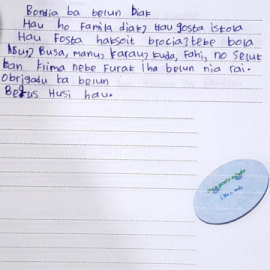 Bondia ba belun Diak
Hau ho Familia diak, Hau gosta iskola
Hau Fosta haksoit brocia, tebe bola
Asu, Busa, manu, karau, kuda, Fahi, no seluk
kan klima nebe Furak iha belun nia rai.
Obrigadu ba belun
Beijus Husi hau.